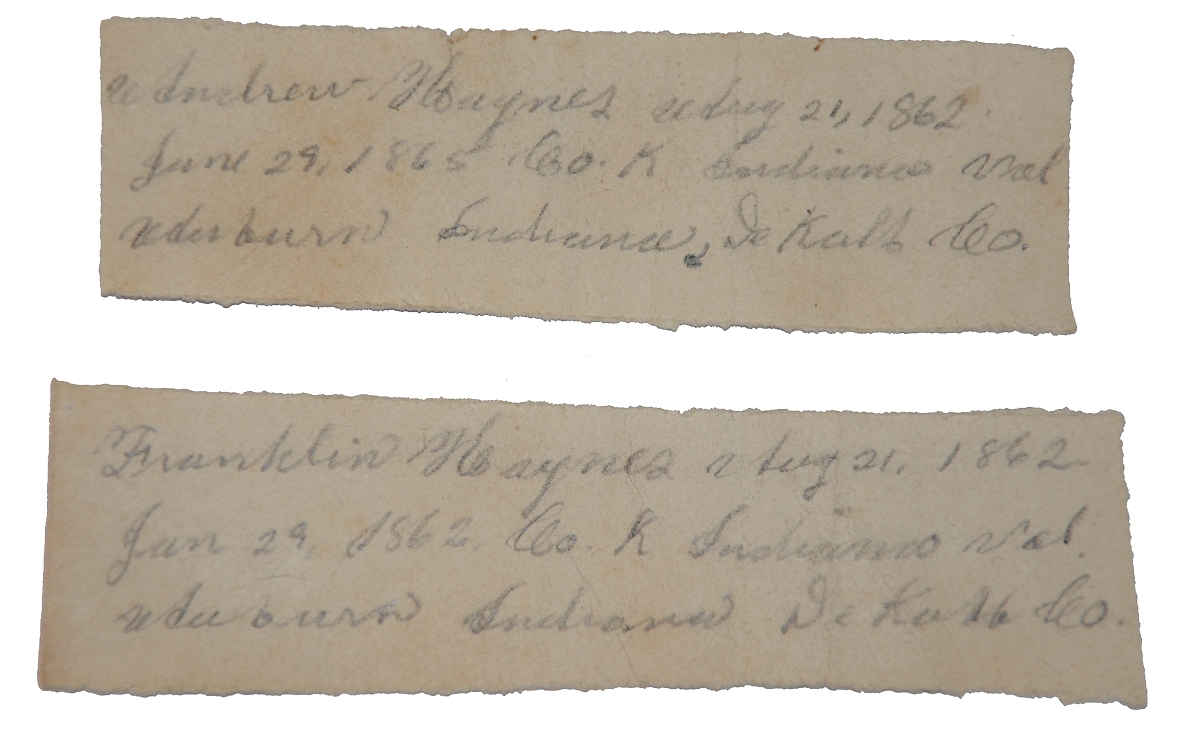 Andrew Haynes Aug 21, 1862.
June 29, 1865 Co. K Indiana Vol
Auburn Indiana, De Kalb Co.
Franklin Haynes Aug 21, 1862
Jan 29, 1862. Co. K Indiana Vol.
Auburn Indiana De Kalb Co.